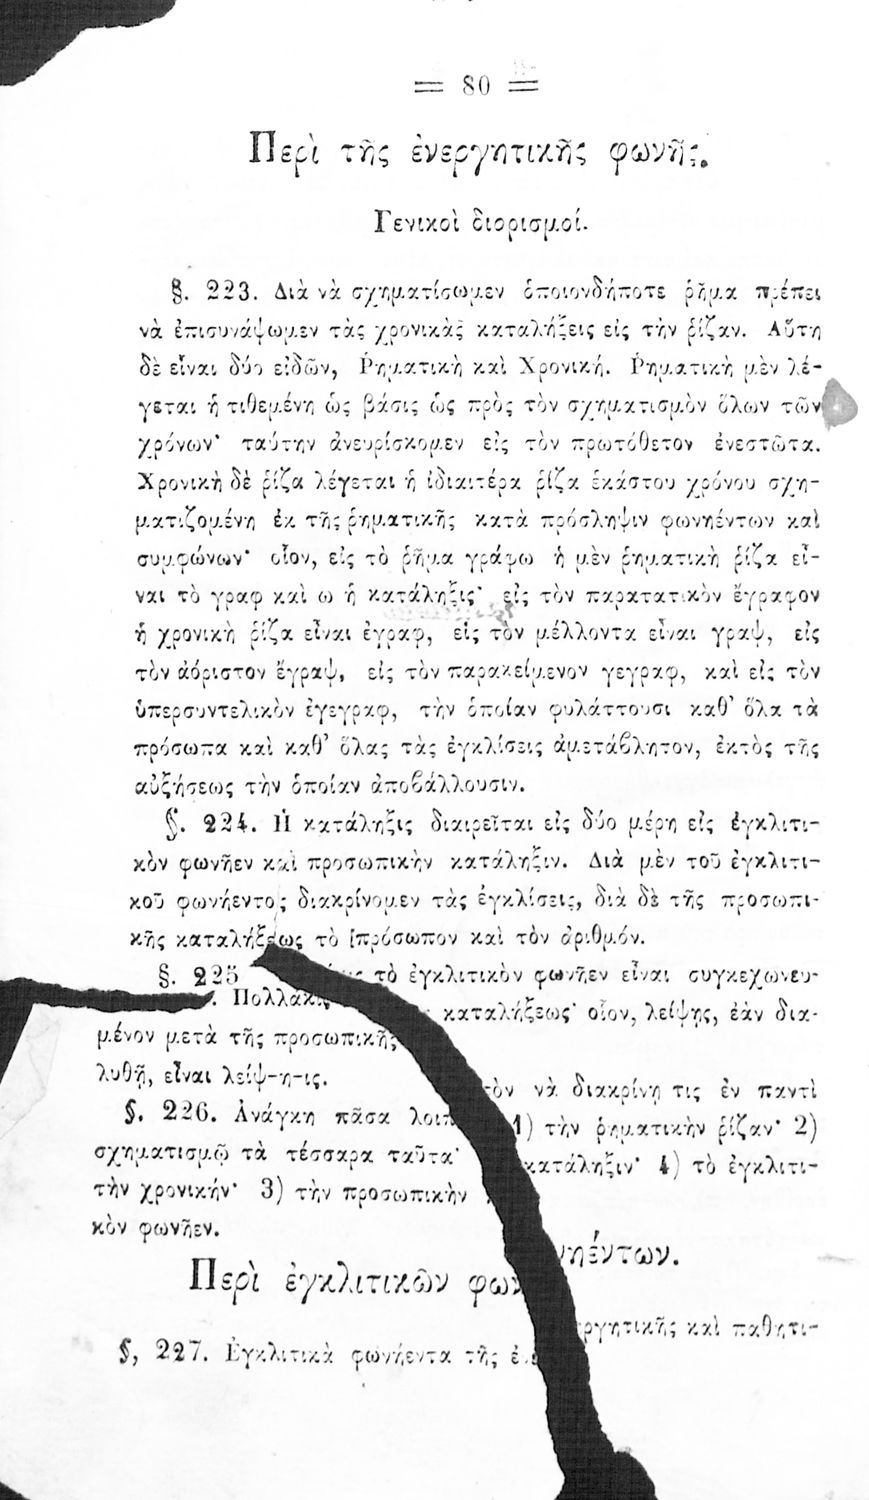 = 80 =
Περὶ τῆς ἐνεργητικῆς φωνῆς.
Γενικοὶ διορισμοί.
§. 223. Διὰ νὰ σχηματίσωμεν ὁποιονδήποτε ῥῆμα πρέπει
νὰ ἐπισυνάψωμεν τὰς χρονικὰς καταλήξεις εἰς τὴν ῥίζαν. Αὕτη
δὲ εἶναι δύο εἰδῶν, Ῥηματικὴ καὶ Χρονική. Ῥηματικὴ μὲν λέ-
γεται ἡ τιθεμένη ὡς βάσις ὡς πρὸς τὸν σχηματισμὸν ὅλων τῶν
χρόνων· ταύτην ἀνευρίσκομεν εἰς τὸν πρωτόθετον ἐνεστῶτα.
Χρονικὴ δὲ ῥίζα λέγεται ἡ ἰδιαιτέρα ῥίζα ἑκάστου χρόνου σχη-
ματιζομένη ἐκ τῆς ῥηματικῆς κατὰ πρόσληψιν φωνηέντων καὶ
συμφώνων· οἷον, εἰς τὸ ῥῆμα γράφω ἡ μὲν ῥηματικὴ ῥίζα εἶ-
ναι τὸ γραφ καὶ ω ἡ κατάληξις· εἰς τὸν παρατατικὸν ἔγραφον
ἡ χρονικὴ ῥίζα εἶναι ἐγραφ, εἰς τὸν μέλλοντα εἶναι γραψ, εἰς
τὸν ἀόριστον ἔγραψ, εἰς τὸν παρακείμενον γεγραφ, καὶ εἰς τὸν
ὑπερσυντελικὸν ἐγεγραφ, τὴν ὁποίαν φυλάττουσι καθ' ὅλα τὰ
πρόσωπα καὶ καθ' ὅλας τὰς ἐγκλίσεις ἀμετάβλητον, ἐκτὸς τῆς
αὐξήσεως τὴν ὁποίαν ἀποβάλλουσιν.
§. 224. Ἡ κατάληξις διαιρεῖται εἰς δύο μέρη εἰς ἐγκλιτι-
κὸν φωνῆεν καὶ προσωπικὴν κατάληξιν. Διὰ μὲν τοῦ ἐγκλιτι-
κοῦ φωνήεντος διακρίνομεν τὰς ἐγκλίσεις, διὰ δὲ τῆς προσωπι-
κῆς καταλήξεως τὸ πρόσωπον καὶ τὸν ἀριθμόν.
§. 225. Πολλάκις τὸ ἐγκλιτικὸν φωνῆεν εἶναι συγκεχωνευ-
μένον μετὰ τῆς προσωπικῆς καταλήξεως· οἷον, λείψῃς, ἐὰν δια-
λυθῇ, εἶναι λείψ-η-ις.
§. 226. Ἀνάγκη πᾶσα λοιπ τὸν νὰ διακρίνῃ τις ἐν παντὶ
σχηματισμῷ τὰ τέσσαρα ταῦτα· 1) τὴν ῥηματικὴν ῥίζαν· 2)
τὴν χρονικήν· 3) τὴν προσωπικὴν κατάληξιν· 4) τὸ ἐγκλιτι-
κὸν φωνῆεν.
Περὶ ἐγκλιτικῶν φωνηέντων.
§, 227. Ἐγκλιτικὰ φωνήεντα τῆς ἐνεργητικῆς καὶ παθητι-